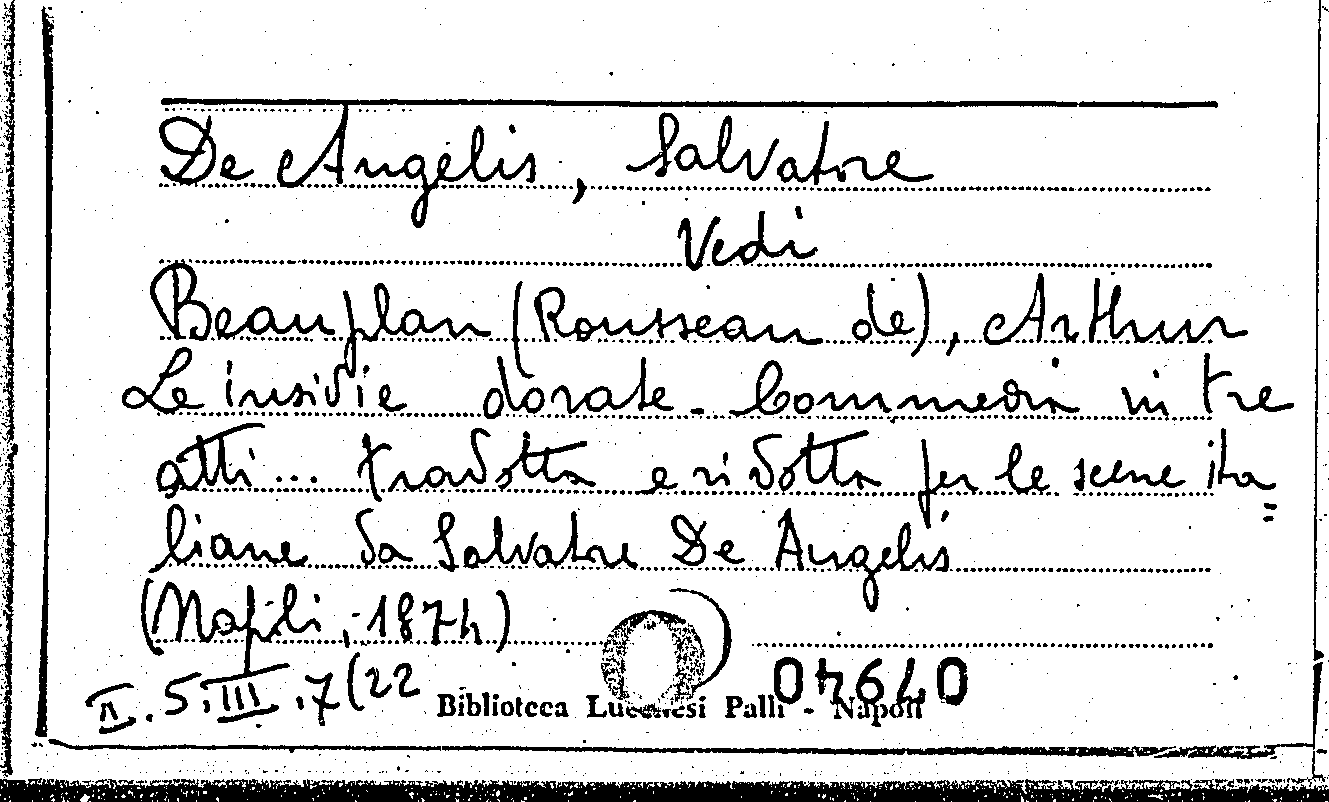 De Angelis, Salvatore
Vedi
Beauplan (Rousseau de), Arthur
Le insidie dorate. Commedia in tre
atti... tradotta e ridotta per le scene ita=
liane da Salvatore De Angelis
(Napoli, 1874)
II.5.III.7(22
Biblioteca Lucchesi Palli - Napoli